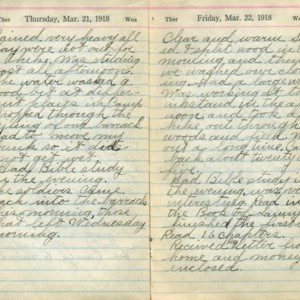 Thursday, Mar. 21, 1918 Ther
ained very heavy all
ay were not out for
hike. Was studing
ost all afternoon.
water was a
but at differ-
ent places in Camp
dropped through the
ling of our barrack
had to move my
unk so it did
not get wet.
Had Bible study
in the evening.
The soldiers came
back into the barrack
this morning, those
that left Wednesday
morning.
Ther Friday, Mar. 22, 1918
Clear and warm s
ed & split wood in
morning and
we washed our clo
ing. Had a
Was working at the
inkstand in the a
noon and took a
hike out through
woods and field
out a long time. Cam
back about twenty
five.
Had Bible study in
the evening, was ver
interesting Read in
the Book of Samu
finished the first
Read 16 chapters.
Recived letter fro
home and money
enclosed.